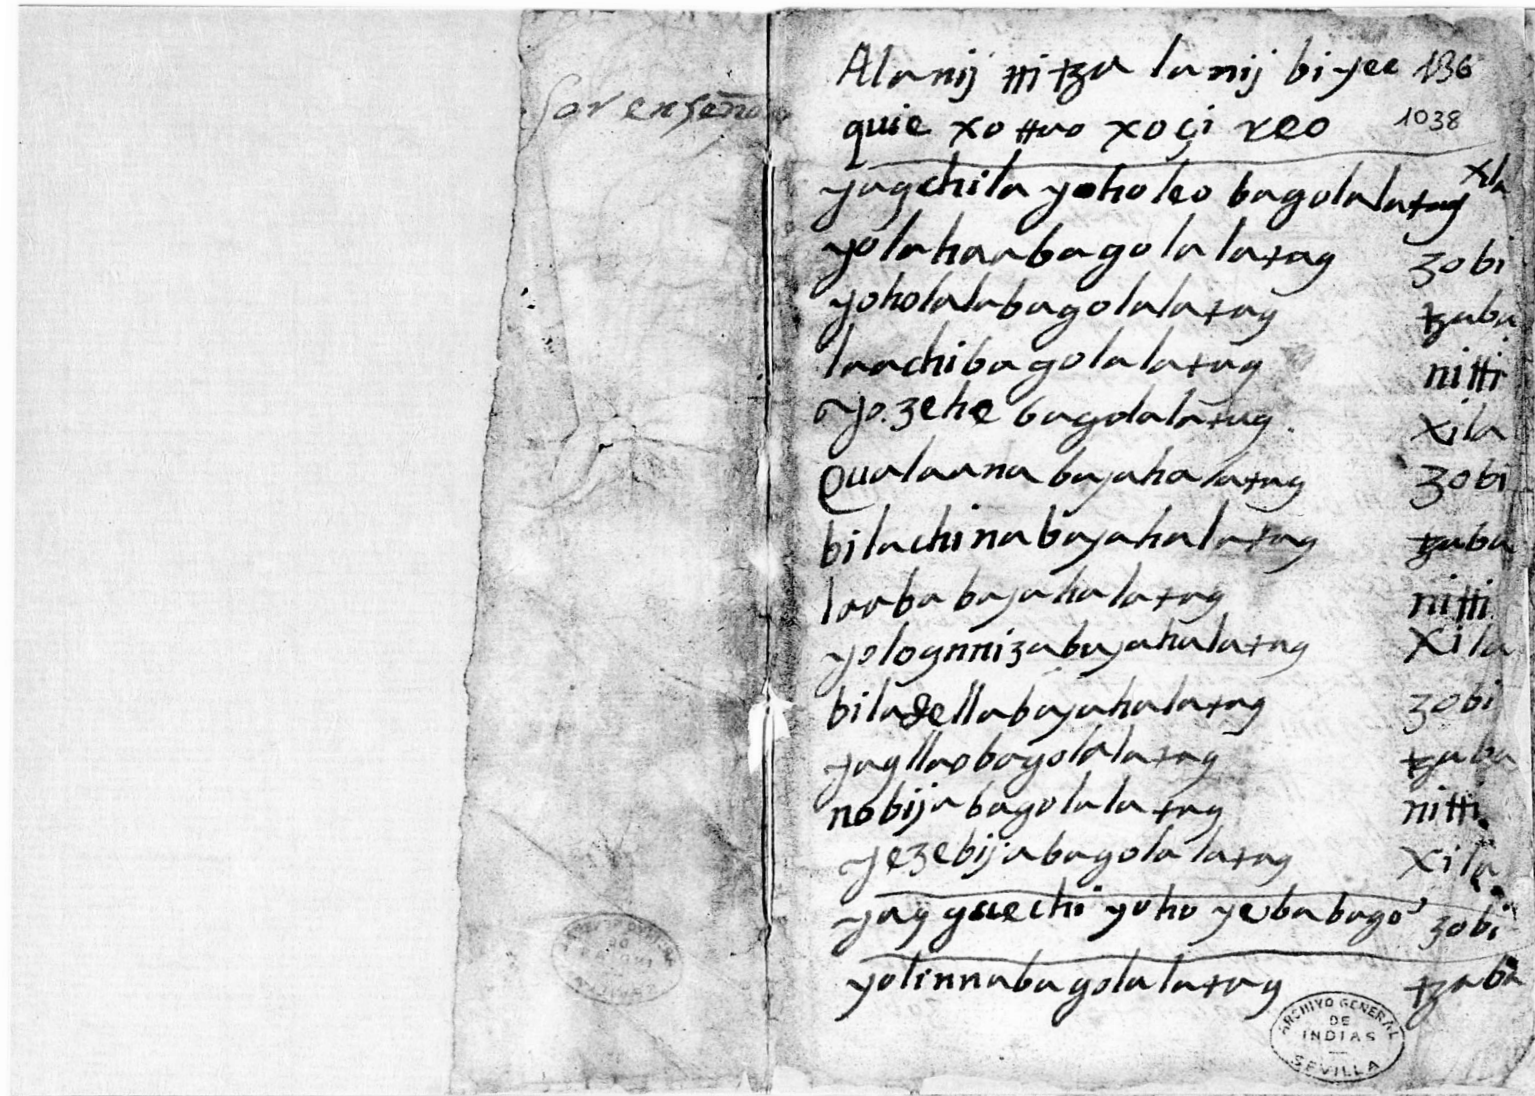 Sor enseño
Alanij ttitza lanij biyee 136
quie xottao xoçi reo 1038
yagchila yoholeo bagolalatag xila
yolahaabagolalatag zobi
yoholalabagolalatag tzaba
laachibagolalatag nitti
yo.zehe bagolalatag. xila
Qualaana bayahalatag zobi
bilachinabayahalatag tzaba
laababayahalatag nitti
yolognnizabayahalatag Xila
biladellabayahalatag zobi
yagllaobagolalatag tzaba
nobijabagolalatag nitti
yezebijabagolalatag Xila
yag guechi yoho yebabago zobi
yolinnabagolalatag tzaba
ARCHIVO GENERAL
DE
INDIAS
SEVILLA